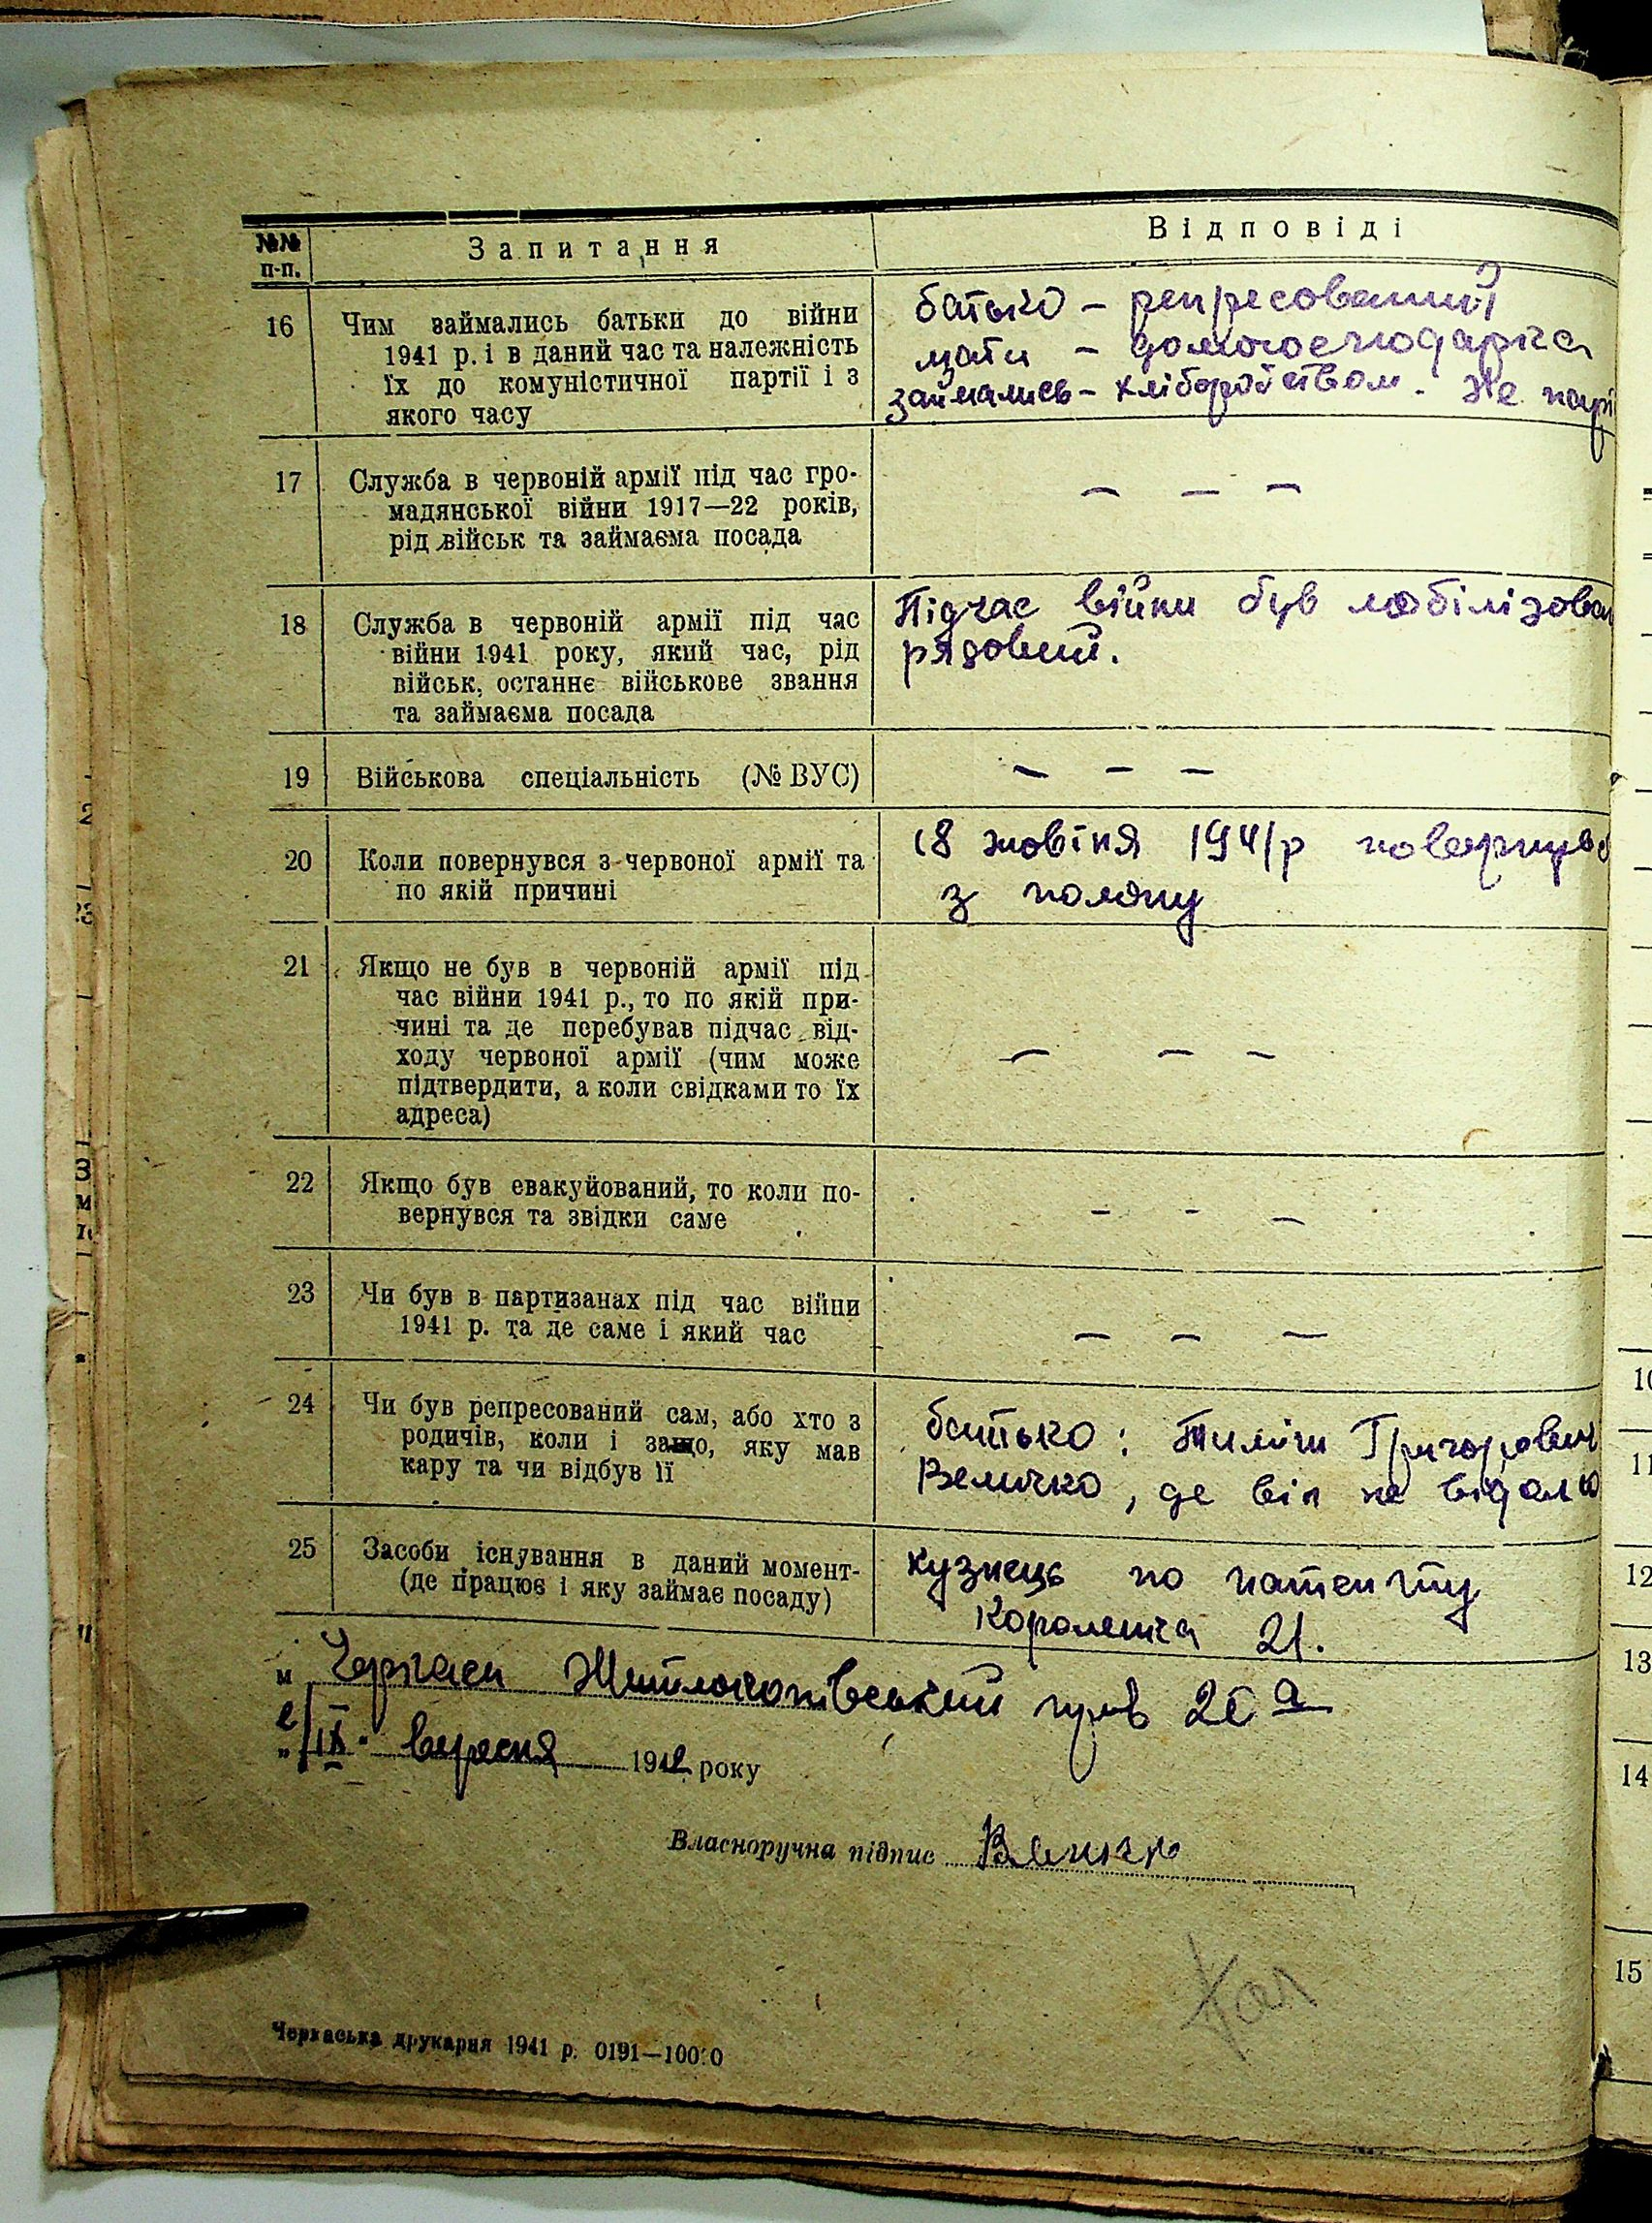 №№ п-п.
Запитання
Відповіді
16
Чим займались батьки до війни
1941 р. і в даний час та належність
їх до комуністичної партії і з
якого часу
батько – репресований
мати – домогосподарка
займались – хліборобством. Не парт
17
Служба в червоній армії під час гро-
мадянської війни 1917—22 років,
рід військ та займаєма посада
— — —
18
Служба в червоній армії під час
війни 1941 року, який час, рід
військ, останнє військове звання
та займаєма посада
Підчас війни був мобілізован
рядовий.
19
Військова спеціальність (№ ВУС)
— — —
20
Коли повернувся з червоної армії та
по якій причині
18 жовтня 1941 р повернувс
з полону
21
Якщо не був в червоній армії під
час війни 1941 р., то по якій при-
чині та де перебував підчас від-
ходу червоної армії (чим може
підтвердити, а коли свідками то їх
адреса)
— — —
22
Якщо був евакуйований, то коли по-
вернувся та звідки саме
- - —
23
Чи був в партизанах під час війни
1941 р. та де саме і який час
— — —
24
Чи був репресований сам, або хто з
родичів, коли і защо, яку мав
кару та чи відбув її
батько: Григорович
Величко, де він не відомо
25
Засоби існування в даний момент-
(де працює і яку займає посаду)
кузнець по патенту
Короленка 21.
м Черкаси пров 20 а
„ /IX" вересня 1942 року
Власноручна підпис Величко
Черкаська друкарня 1941 р. 0191—10000